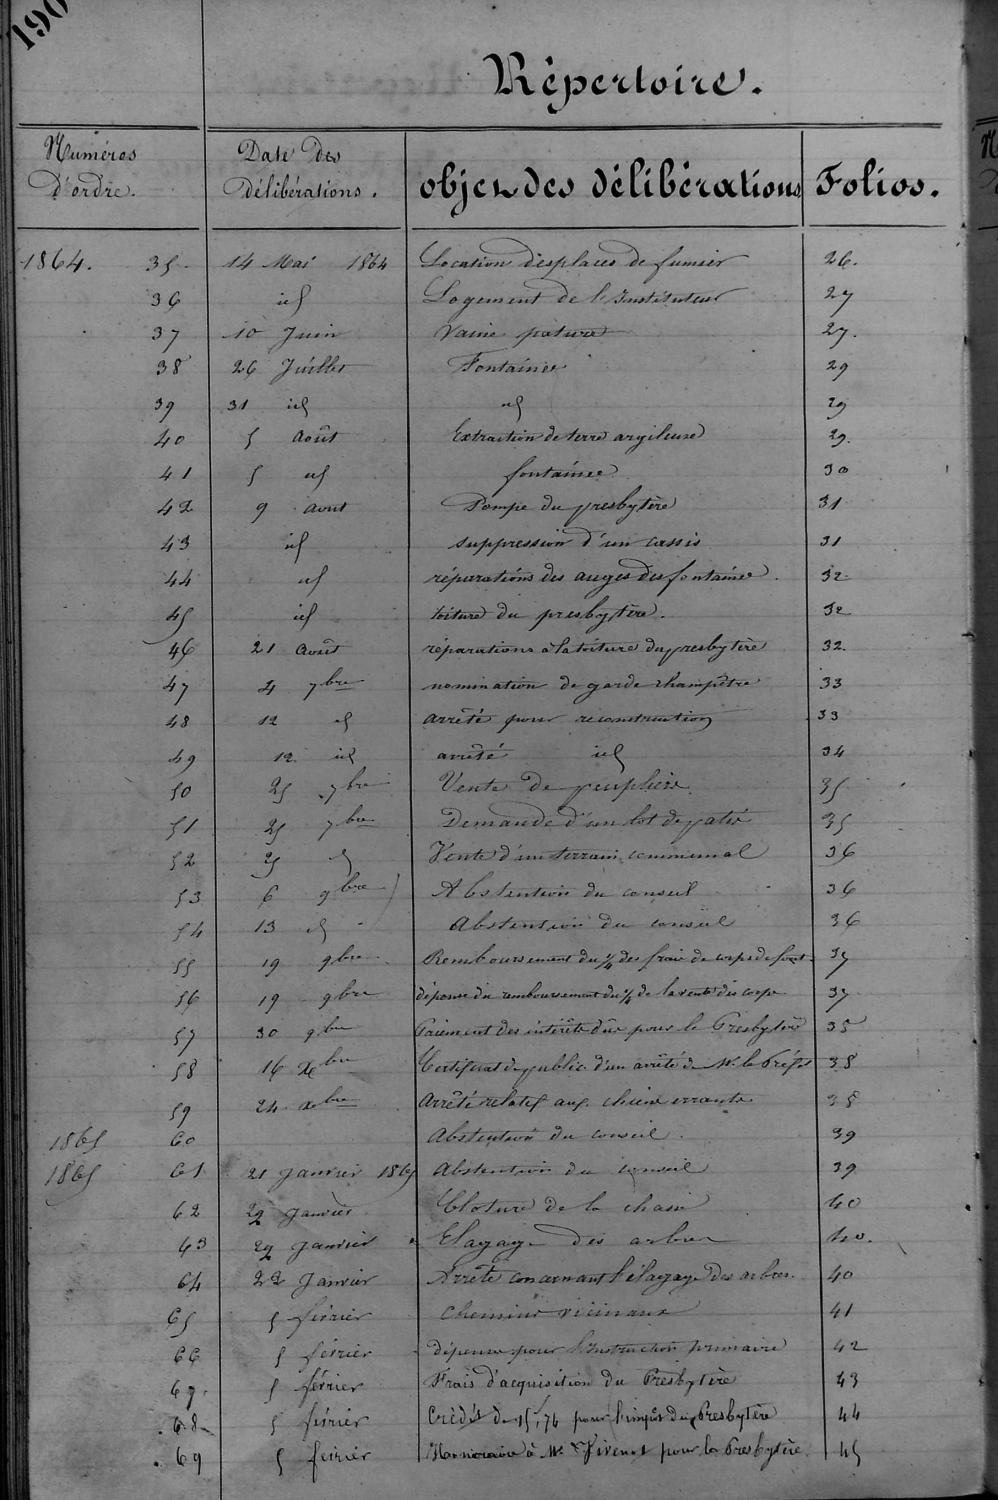 190
Répertoire.
Numéros d'ordre. Date des délibérations. objet des délibérations Folios.
1864. 35 14 Mai 1864 Location des places de fumier 26.
36 id Logement de l'Instituteur 27
37 10 Juin Vaine pature 27.
38 26 Juillet Fontaines 29
39 31 id id 29
40 5 Août Extraction de terre argileuse 29.
41 5 id fontaines 30
42 9 Aout Pompe du presbytère 31
43 id suppression d'un cassis 31
44 id réparations des auges des fontaines. 32
45 id toiture du presbytère. 32
46 21 Août réparations à la toiture du presbytère 32.
47 4 7bre nomination de garde champêtre 33
48 12 id arrêté pour reconstruction 33
49 12 id arrêté id 34
50 25 7bre Vente de peupliers 35
51 25 7bre Demande d'un lot de patis 35
52 25 id Vente d'un terrain communal 36
53 6 9bre Abstention du conseil 36
54 13 id Abstention du conseil 36
55 19 9bre Remboursement du 1/4 des frais de coupe de 37
56 19 9bre dépense du remboursement du 1/4 de la vente des coupe 37
57 30 9bre Paiement des intérêts dûs pour le Presbytère 38
58 16 Xbre Certificat de public. d'un arrêté de Mr. le Préfet 38
59 24 Xbre Arrêté relatif aux chiens errants 38
1865 60 Abstention du conseil. 39
1865 61 21 Janvier 1865 Abstention du conseil 39
62 22 Janvier Cloture de la chasse 40
63 22 Janvier Elagage des arbres 40.
64 22 Janvier Arrêté concernant l'élagage des arbres. 40
65 5 février Chemins vicinaux 41
66 5 février dépense pour l'instruction primaire 42
67. 5 février Frais d'acquisition du Presbytère 43
68 5 février Crédit de 15f,74 pour l'impôt du Presbytère 44
69 5 février Honoraire à Mr. Vivenot pour le Presbytère. 45